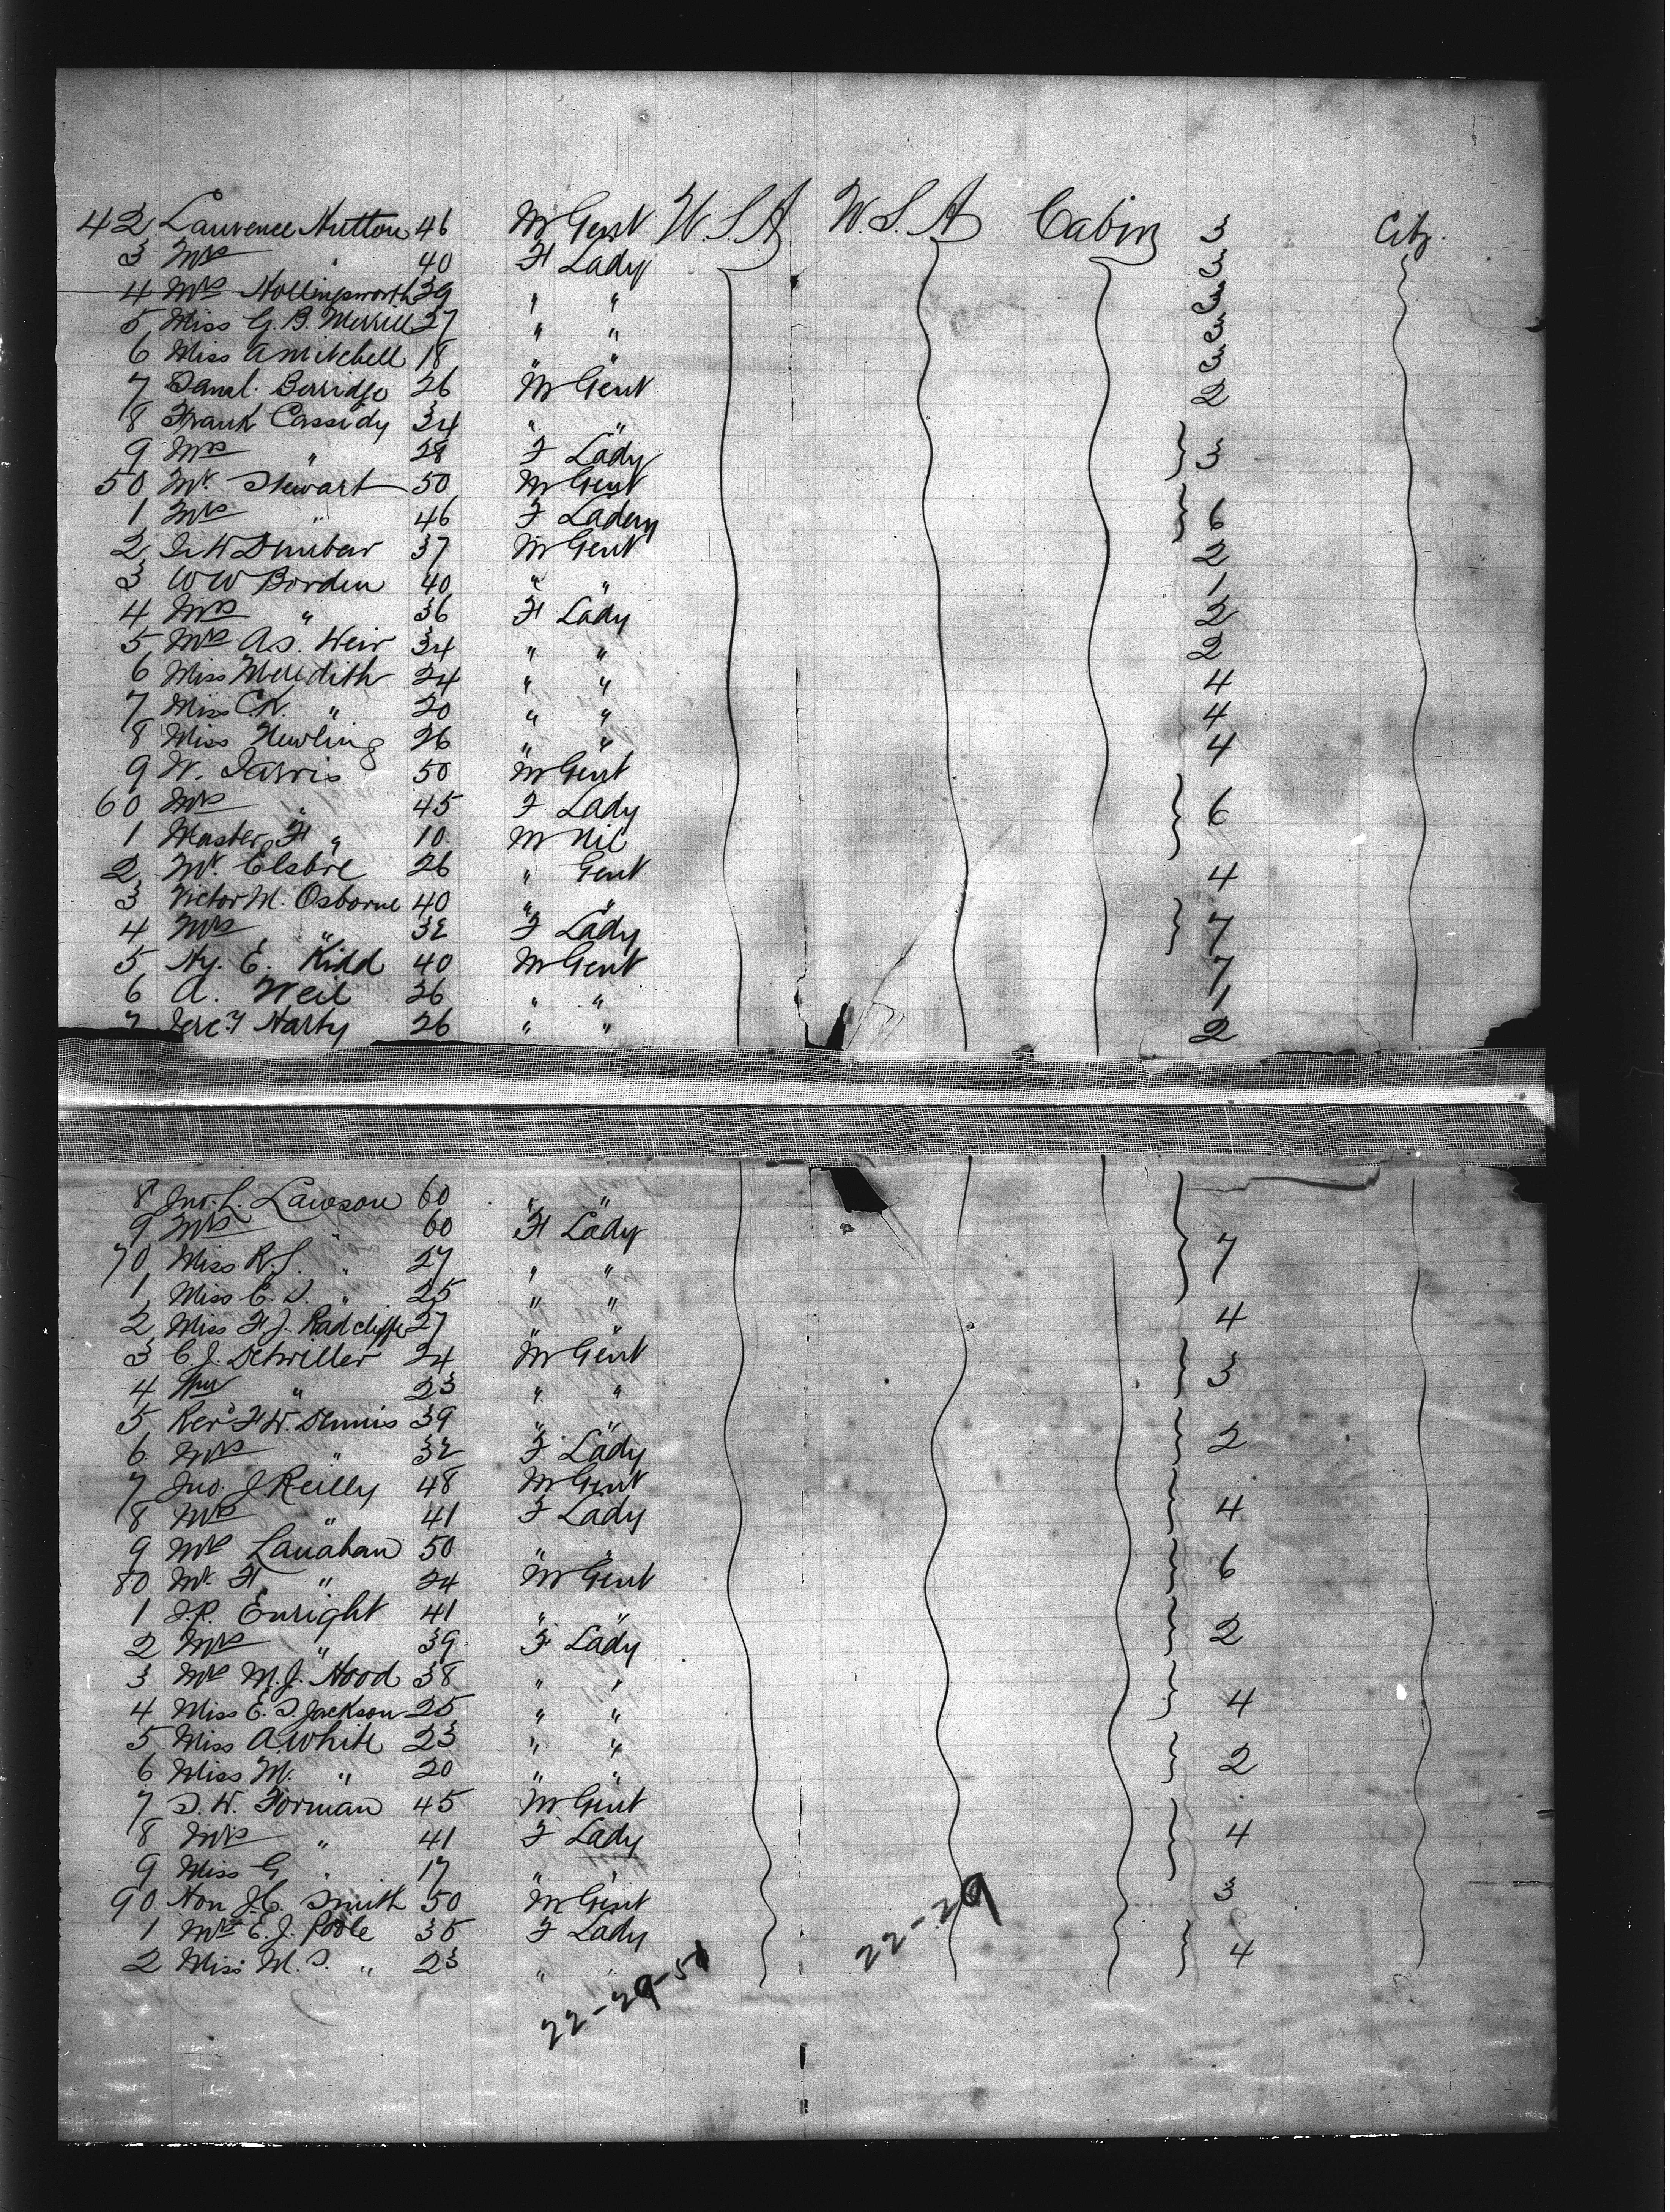 42 Laurence Hutton 46 M Gent U.S.A U.S.A Cabin 3 City.
3 Mrs " 40 F Lady 3
4 Mrs Hollingsworth 39 " " 3
5 Miss G. B. Merrill 27 " " 3
6 Miss A Mitchell 18 " " 3
7 Saml. Berridge 26 M Gent 2
8 Frank Cassidy 34 " "
9 Mrs " 28 F Lady 3
50 Mr. Stewart 50 M Gent
1 Mrs " 46 F Lady 6
2 Dunbar 37 M Gent 2
3 W W Borden 40 " " 1
4 Mrs " 36 F Lady 2
5 Mrs A.S. Weir 34 " " 2
6 Miss Meredith 24 " " 4
7 Miss C.K. " 20 " " 4
8 Miss Newling 26 " " 4
9 W. Jarvis 50 M Gent
60 Mrs " 45 F Lady 6
1 Master H " 10 M Nil
2 Mr. Elsbre 26 " Gent 4
3 Victor M. Osborne 40 " "
4 Mrs " 32 F Lady 7
5 Hy. E. Kidd 40 M Gent 7
6 A. Weil 36 " " 1
7 Jerey Harty 26 " " 2
8 Jno. L. Lawson 60 " "
9 Mrs " 60 F Lady
70 Miss R.S. " 27 " " 7
1 Miss E. S. " 25 " "
2 Miss H J. Radcliffe 27 " " 4
3 C. J. Detwiller 24 M Gent 3
4 Wm " 23 " "
5 Revd H W. Dennis 39 " "
6 Mrs " 32 F Lady 2
7 Jno. J Reilly 48 M Gent
8 Mrs " 41 F Lady 4
9 Mrs Lanahan 50 " "
80 Mr. H " 24 M Gent 6
1 J.P. Enright 41 " "
2 Mrs " 39 F Lady 2
3 Mrs M. J. Hood 38 " "
4 Miss E. S. Jackson 25 " " 4
5 Miss A White 23 " "
6 Miss M. " 20 " " 2
7 S. W. Forman 45 M Gent
8 Mrs " 41 F Lady 4
9 Miss G " 17 " "
90 Hon J.C. Smith 50 M Gent 3
1 Mrs E. J. Poole 35 F Lady
2 Miss M. S. " 23 " " 4
22-29
22-29-51